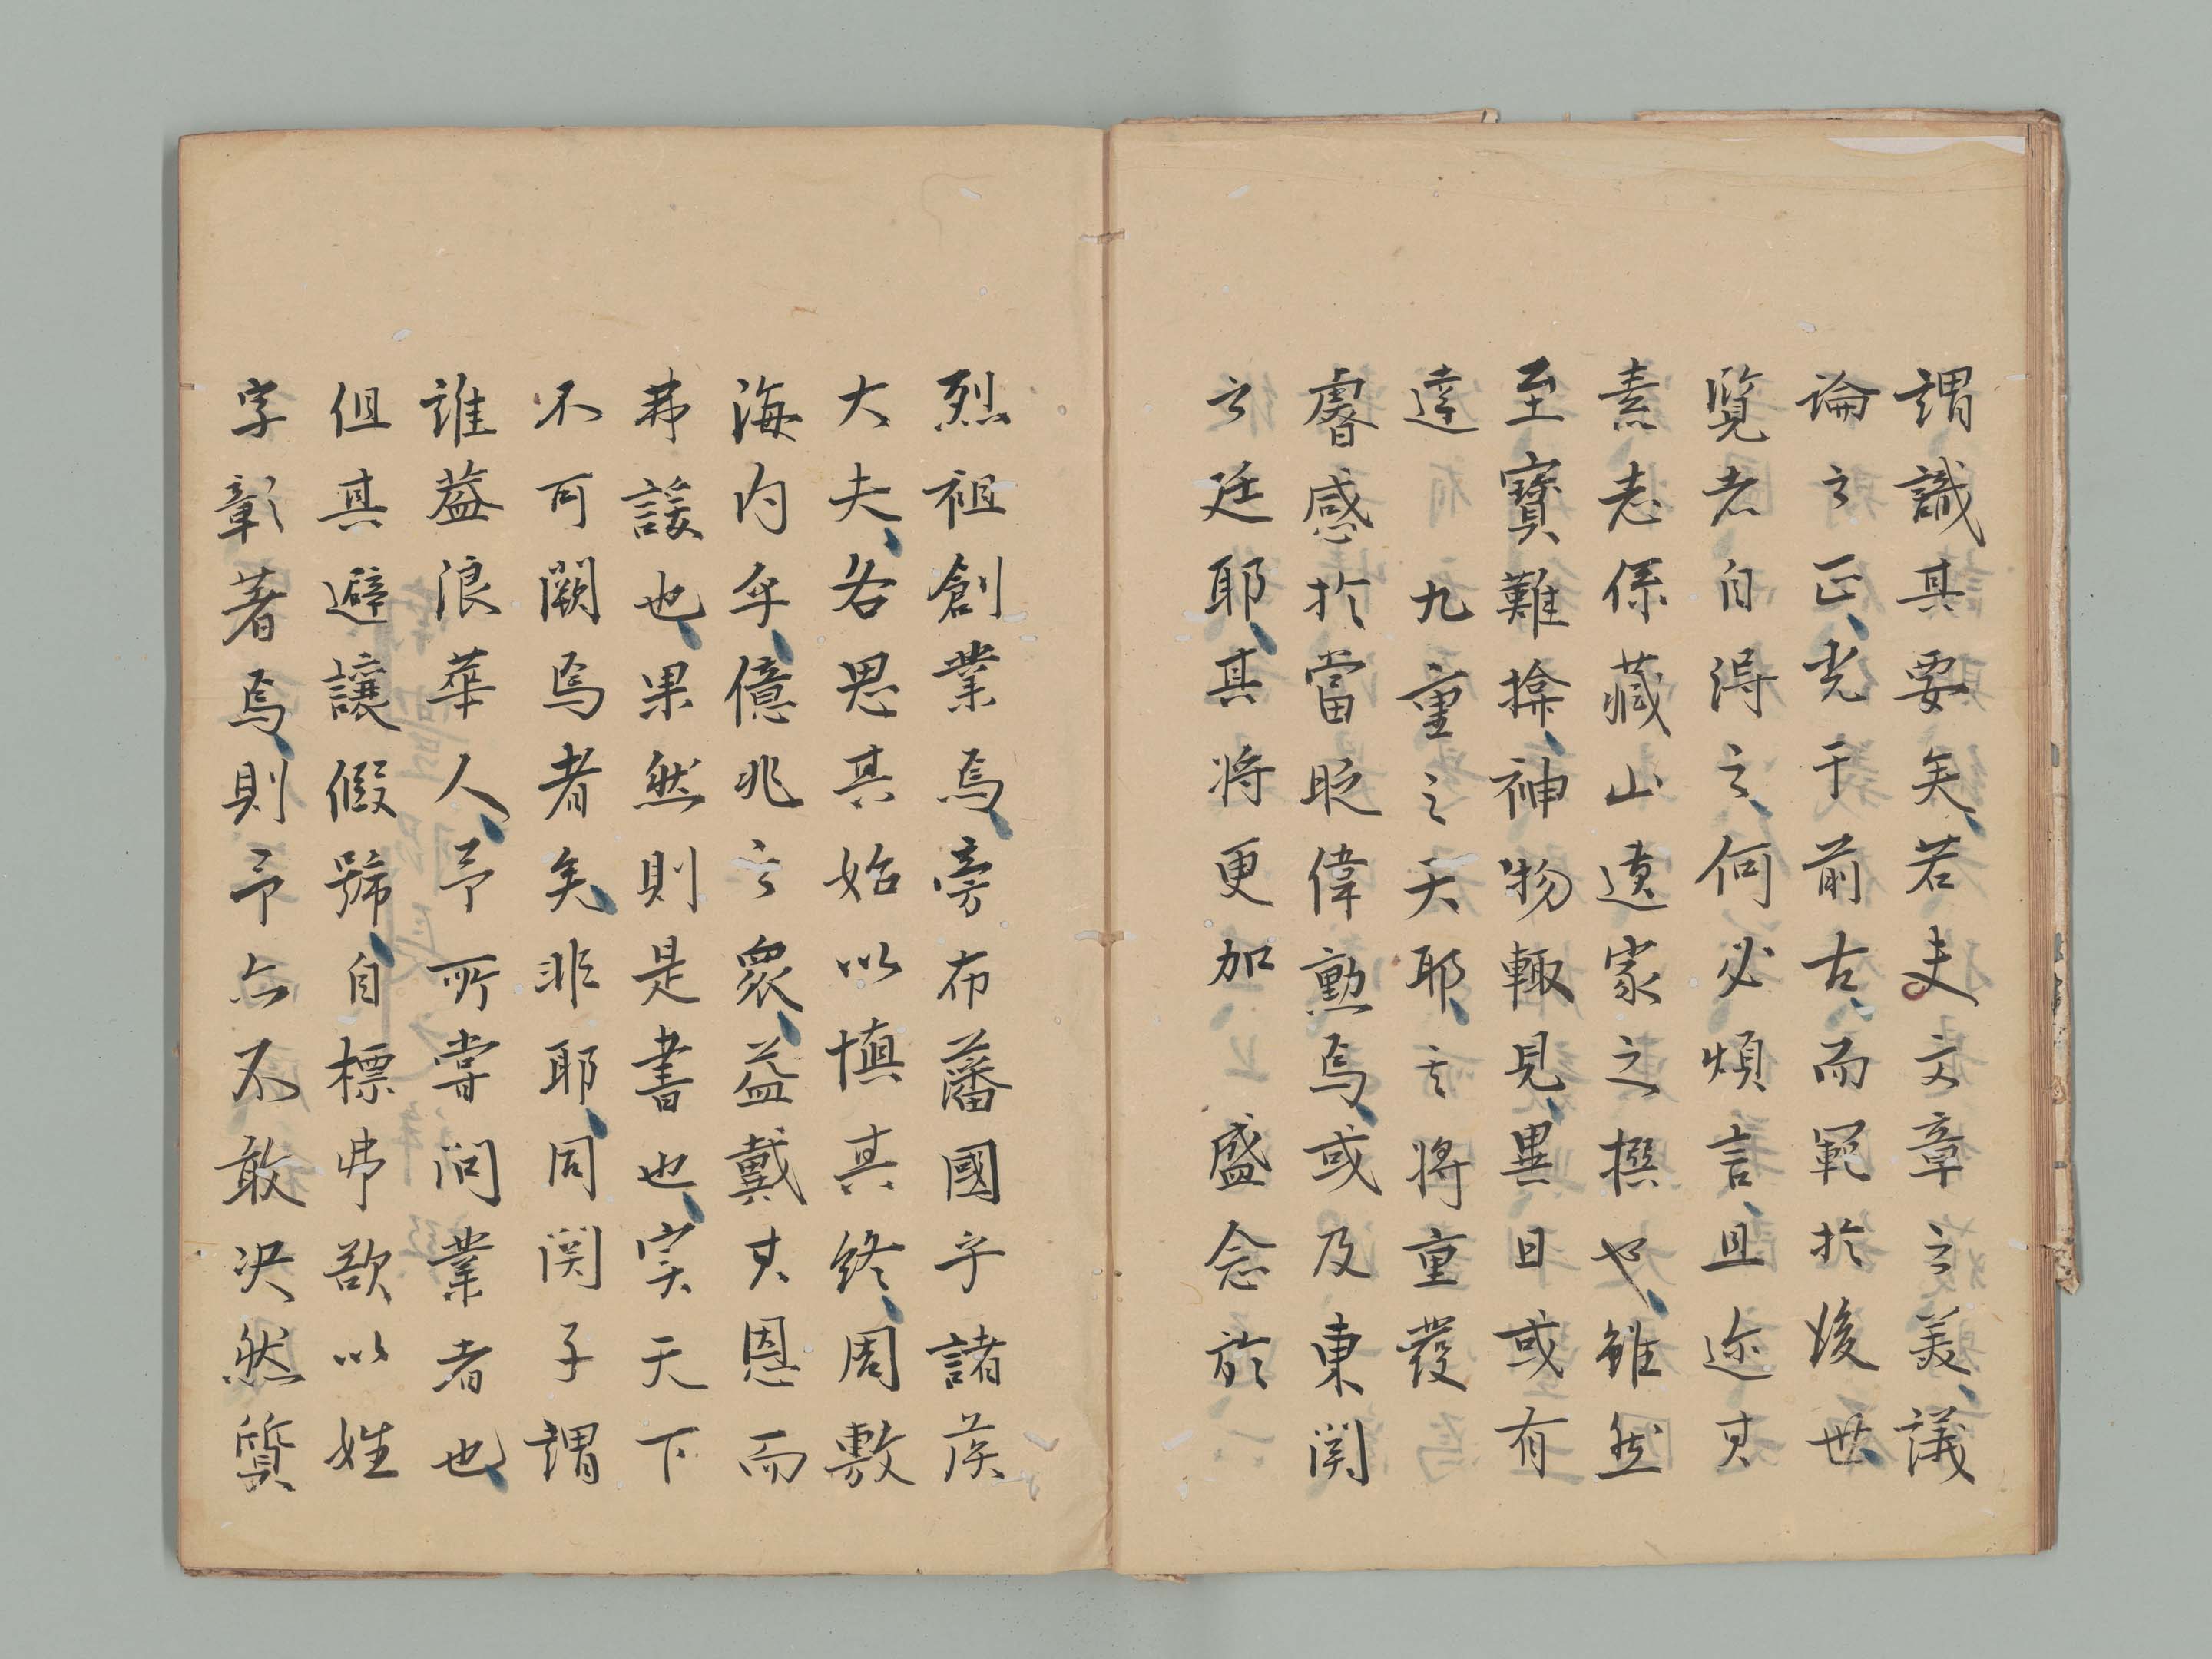 謂識其要矣、若夫文章之美、議
論之正、光于前古、而範於後世、
覧者自得之、何必煩言、且迹其
素志係藏山遺家之撰也、雖然
至寶難揜、神物輙見、異日或有
達 九重之天耶、之將重發
睿感於當眤偉勳焉、或及東関
之廷耶、其将更加 盛念於
烈祖創業焉、旁布藩國乎諸侯
大夫、各思其始以慎其終、周敷
海内乎、億兆之衆、益戴其恩而
弗諼也、果然則是書也、実天下
不可闕焉者矣、非耶、同関子謂
誰蓋浪華人、予所嘗問業者也、
但其避讓假號、自標弗欲以姓
字彰著焉、則予亦不敢决然質